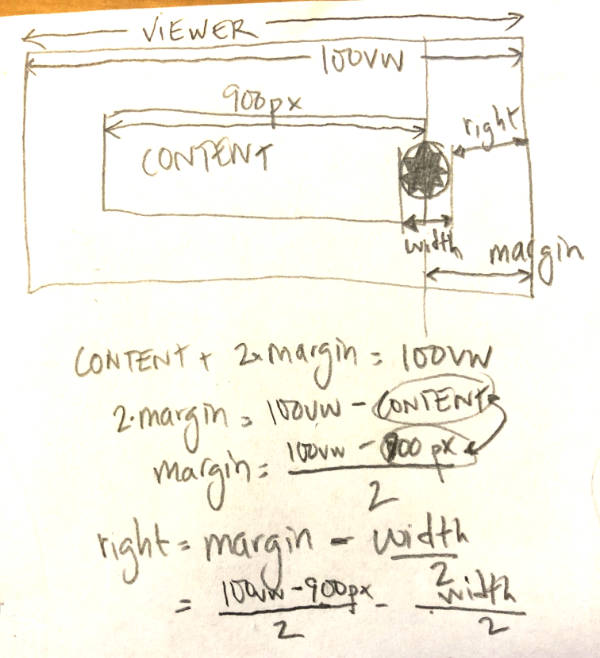 VIEWER
100VW
900px
right
CONTENT
width
margin
CONTENT + 2×margin = 100VW
2·margin = 100VW - CONTENT
margin = 100VW - 900px
2
right = margin - width
2
= 100VW - 900px - width
2 2